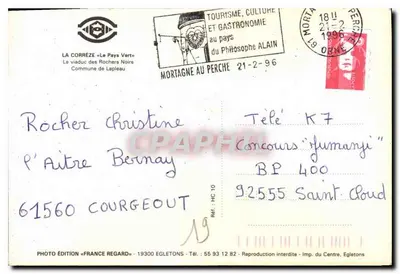 LA CORRÈZE «Le Pays Vert»
Le viaduc des Rochers Noirs
Commune de Lapleau
TOURISME, CULTURE
ET GASTRONOMIE
au pays
du Philosophe ALAIN
MORTAGNE AU PERCHE 21-2-96
61 MORTAGNE AU PERCHE
18 H
21-2
1996
ORNE
Rocher Christine
l'Aitre Bernay
61560 COURGEOUT
Télé K7
Concours "Jumanji"
BP 400
92555 Saint Cloud
19
Réf.: HC 10
PHOTO ÉDITION «FRANCE REGARD» - 19300 EGLETONS - Tél. : 55 93 12 82 - Reproduction interdite - Imp. du Centre, Egletons